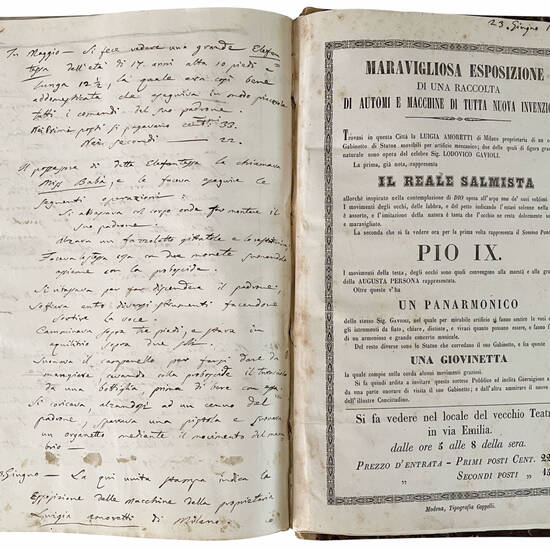 In Maggio – Si fece vedere una grande Elefan
tessa dell'età di 17. anni alta 10 piedi e
lunga 12½, la quale era così bene
addomesticata che eseguiva in modo
tutti i comandi del suo padrone.
Nei Primi posti si pagavano cent. 33.
Nei secondi — 22.
Il possessore di detta Elefantessa la chiamava
Miss Babà, e le faceva eseguire le
seguenti operazioni:
Si abbassava col corpo onde far montare il
suo padrone
Alzava un fazzoletto gittatole e lo restituiva
Faceva la stessa cosa con due monete
colla proboscide.
Si alzava per far discendere il padrone.
Soffiava entro diversi strumenti facendone
sortire la voce.
Camminava sopra tre piedi, e stava in
equilibrio sopra due soli.
Suonava il campanello per farsi dare da
mangiare cavando colla proboscide il turacciolo
da una bottiglia prima di bere
Si coricava alzandosi ad un cenno del
padrone, sparava una pistola e suonava
un organetto mediante il movimento del mem
bro —
Giugno – La qui unita stampa indica la
Esposizione delle macchine della proprietaria
Luigia Amoretti di Milano.
23. Giugno
MARAVIGLIOSA ESPOSIZIONE
DI UNA RACCOLTA
DI AUTOMI E MACCHINE DI TUTTA NUOVA INVENZIO
Trovasi in questa Città la LUIGIA AMORETTI di Milano proprietaria di un
Gabinetto di Statue movibili per artificio meccanico; due delle quali di figura gran
naturale sono opera del celebre Sig. LODOVICO GAVIOLI.
La prima, già nota, rappresenta
IL REALE SALMISTA
allorchè inspirato nella contemplazione di DIO sposa all'arpa uno de' suoi sublimi
I movimenti degli occhi, delle labbra, e del petto indicando l'estasi solenne nella
è assorto, e l'imitazione della natura è tanta che l'occhio ne resta dolcemente
e maravigliato.
La seconda che si fa vedere ora per la prima volta rappresenta il Sommo Pont
PIO IX.
I movimenti della testa, degli occhi sono quali convengono alla maestà e alla gra
della AUGUSTA PERSONA rappresentata.
Oltre queste v'ha
UN PANARMONICO
dello stesso Sig. GAVIOLI, nel quale per mirabile artificio si fanno sentire le voci
gli istrumenti da fiato, chiare, distinte, e vivaci quanto possano essere, e fanno
di un armonioso e grande concerto musicale.
Del resto diverse sono le Statue che corredano il suo Gabinetto, e fra queste
UNA GIOVINETTA
la quale compie sulla corda alcuni movimenti graziosi.
Si fa quindi ardita a invitare questo cortese Pubblico ed inclita Guernigione a
da una parte onorare di visita il suo Gabinetto; e dall'altra ammirare il nuovo
dell'illustre Concittadino.
Si fa vedere nel locale del vecchio Teat
in via Emilia.
dalle ore 5 alle 8 della sera.
PREZZO D'ENTRATA - PRIMI POSTI CENT. 22
„ SECONDI POSTI „ 15
Modena, Tipografia Cappelli.